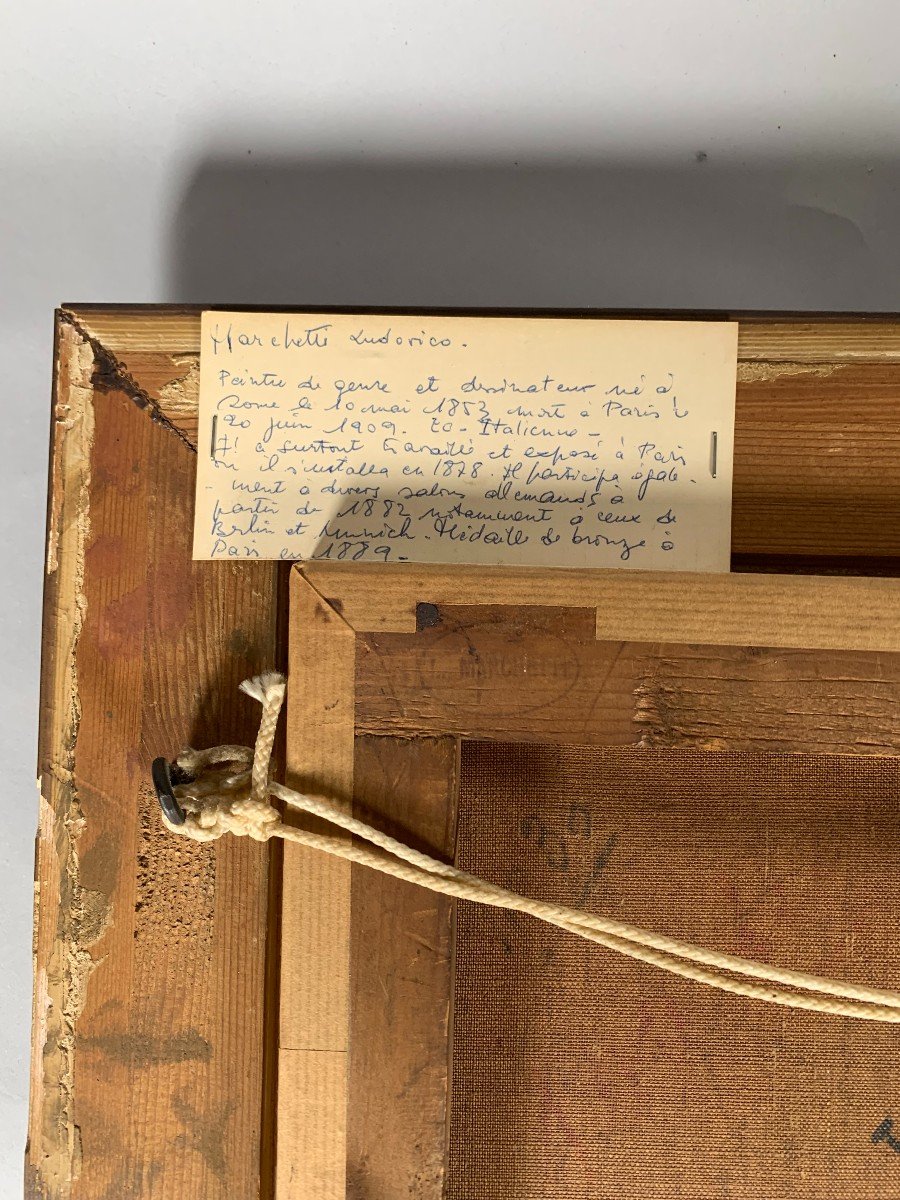 Marchetti Ludovico.
Peintre de genre et dessinateur né à
Rome le 10 mai 1853 mort à Paris le
20 juin 1909. Ec. Italienne -
Il a surtout travaillé et exposé à Paris
où il s'installa en 1878. Il participa égale-
-ment à divers salons allemands à
partir de 1882 notamment à ceux de
Berlin et Munich. Médaille de bronze à
Paris en 1889.-